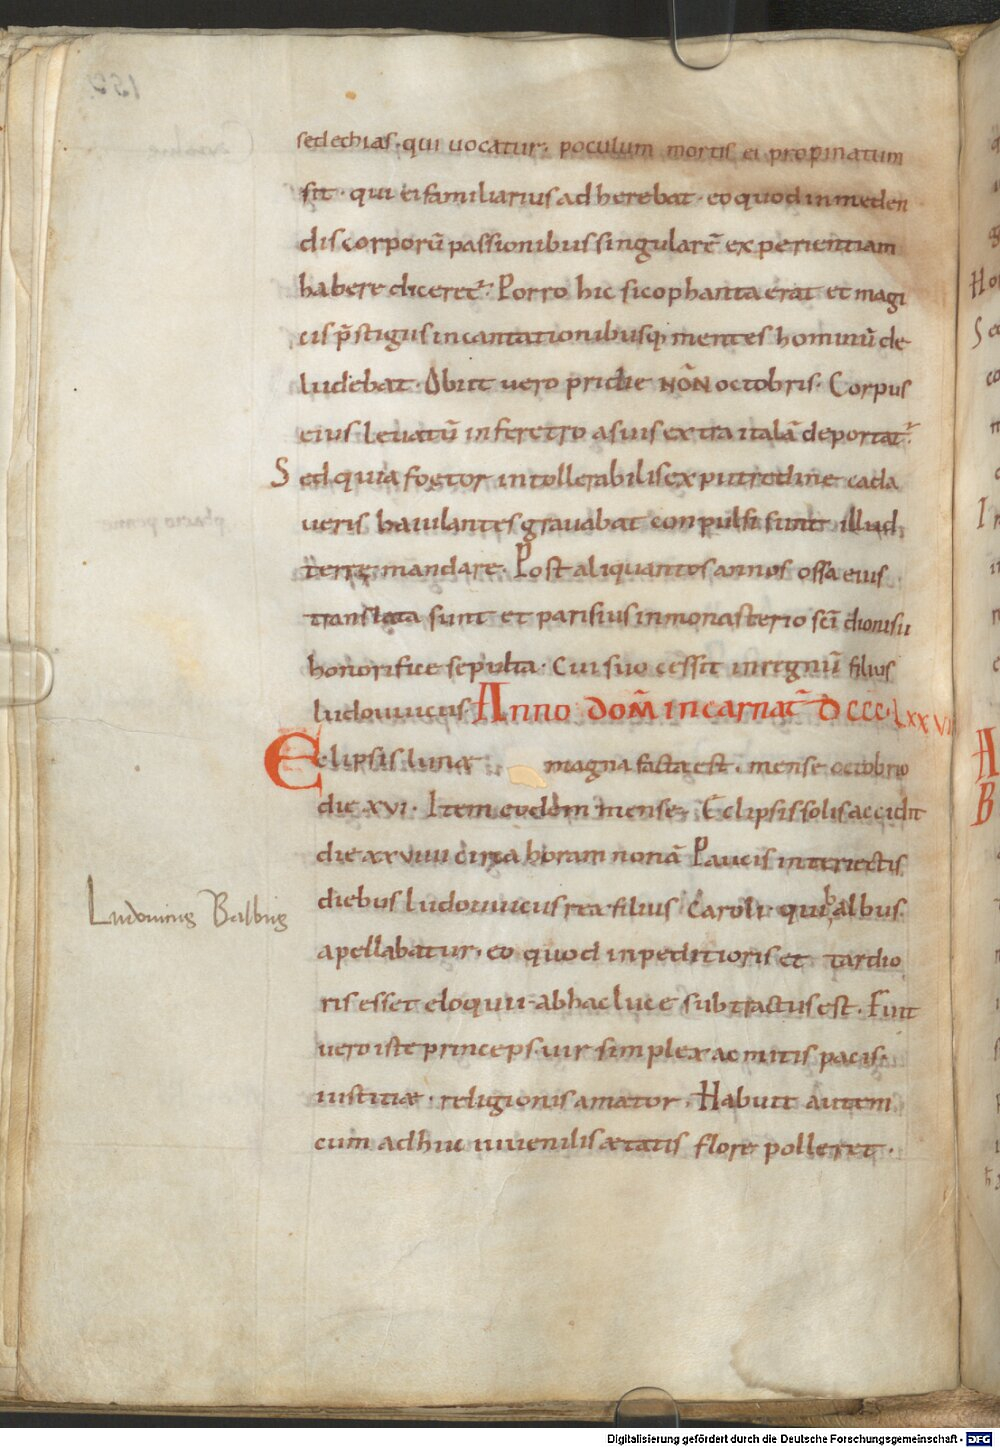 sedechias · qui uocatur · poculum mortis ei propinatum
sit · qui ei familiarius adherebat · eo quod in meden
dis corporū passionibus singularē experientiam
habere diceret᷑ · Porro hic sicophanta erat et magi
cis p̄stigiis incantationibusq; mentes hominū de
ludebat · Obiit uero pridie NON̄ octobris · Corpus
eius leuatū in feretro a suis extra italā deportat᷑ ·
Sed quia foetor intollerabilis ex putredine cada
ueris baiulantes grauabat conpulsi sunt illud
terrę mandare · Post aliquantos annos ossa eius
translata sunt et parisius in monasterio sc̄i dionisii
honorifice sepulta · Cui successit in regnū filius
ludouuicus · Anno dom̄ incarnat̄ DCCC·LXXVI
Eclipsis lunæ magna facta est · mense octobrio
die XVI · Item eodem mense · Eclipsis solis accidit
die xxviiii circa horam nonā Paucis interiectis
diebus ludouuicus rex filius Caroli · qui balbus
apellabatur · eo quod inpeditioris et tardio
ris esset eloquii · ab hac luce subtractus est · Fuit
uero iste princeps · uir simplex ac mitis pacis ·
iustitiæ · religionis amator · Habuit autem
cum adhuc iuuenilis ætatis flore polleret ·
Ludouicus Balbus
Digitalisierung gefördert durch die Deutsche Forschungsgemeinschaft - DFG